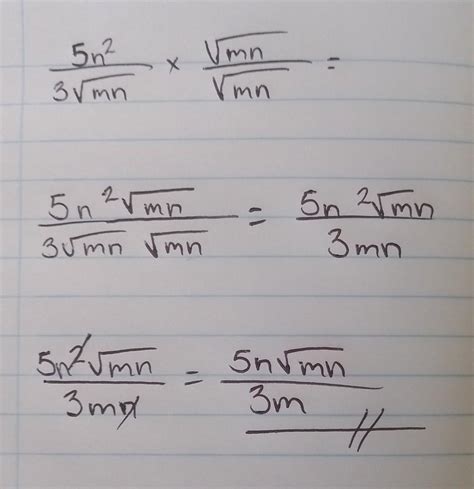 5n²/3√mn × √mn/√mn =
5n²√mn/3√mn √mn = 5n²√mn/3mn
5n²√mn/3mn = 5n√mn/3m